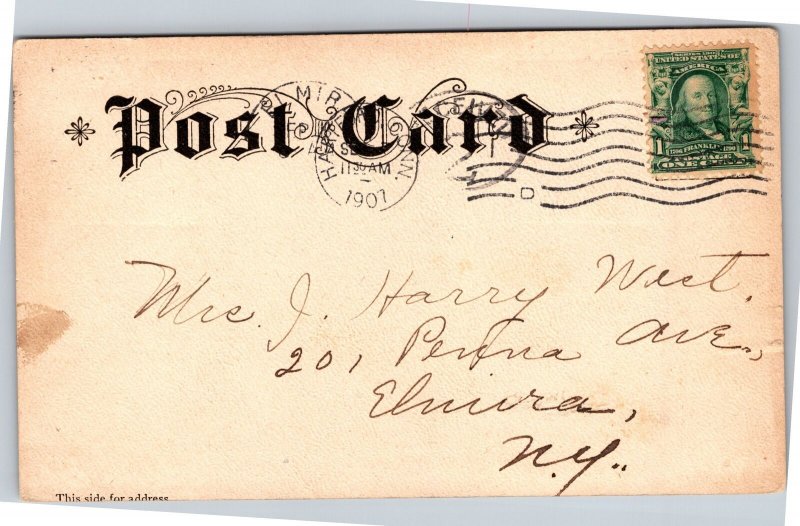 Post Card
MIRA
HA CONN.
11 30 AM
1907
D
SERIES 1902
UNITED STATES OF
AMERICA
1 FRANKLIN 1790 1
POSTAGE
ONE CENT
Mrs. J. Harry West.
201 Penna Ave.,
Elmira,
N.Y..
This side for address